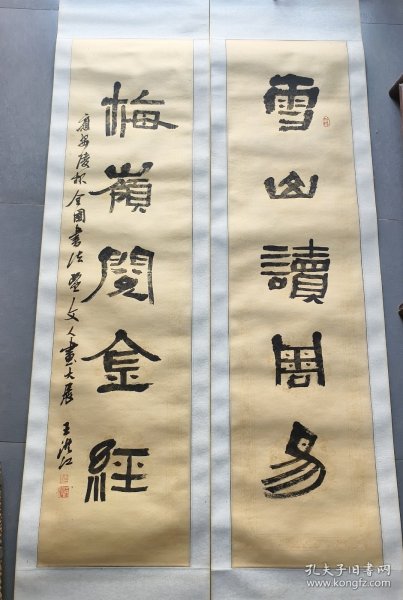 雪山讀周易
梅嶺閱金經
全國書法暨文人畫大展
王洪江
孔夫子旧书网
www.kongfz.com